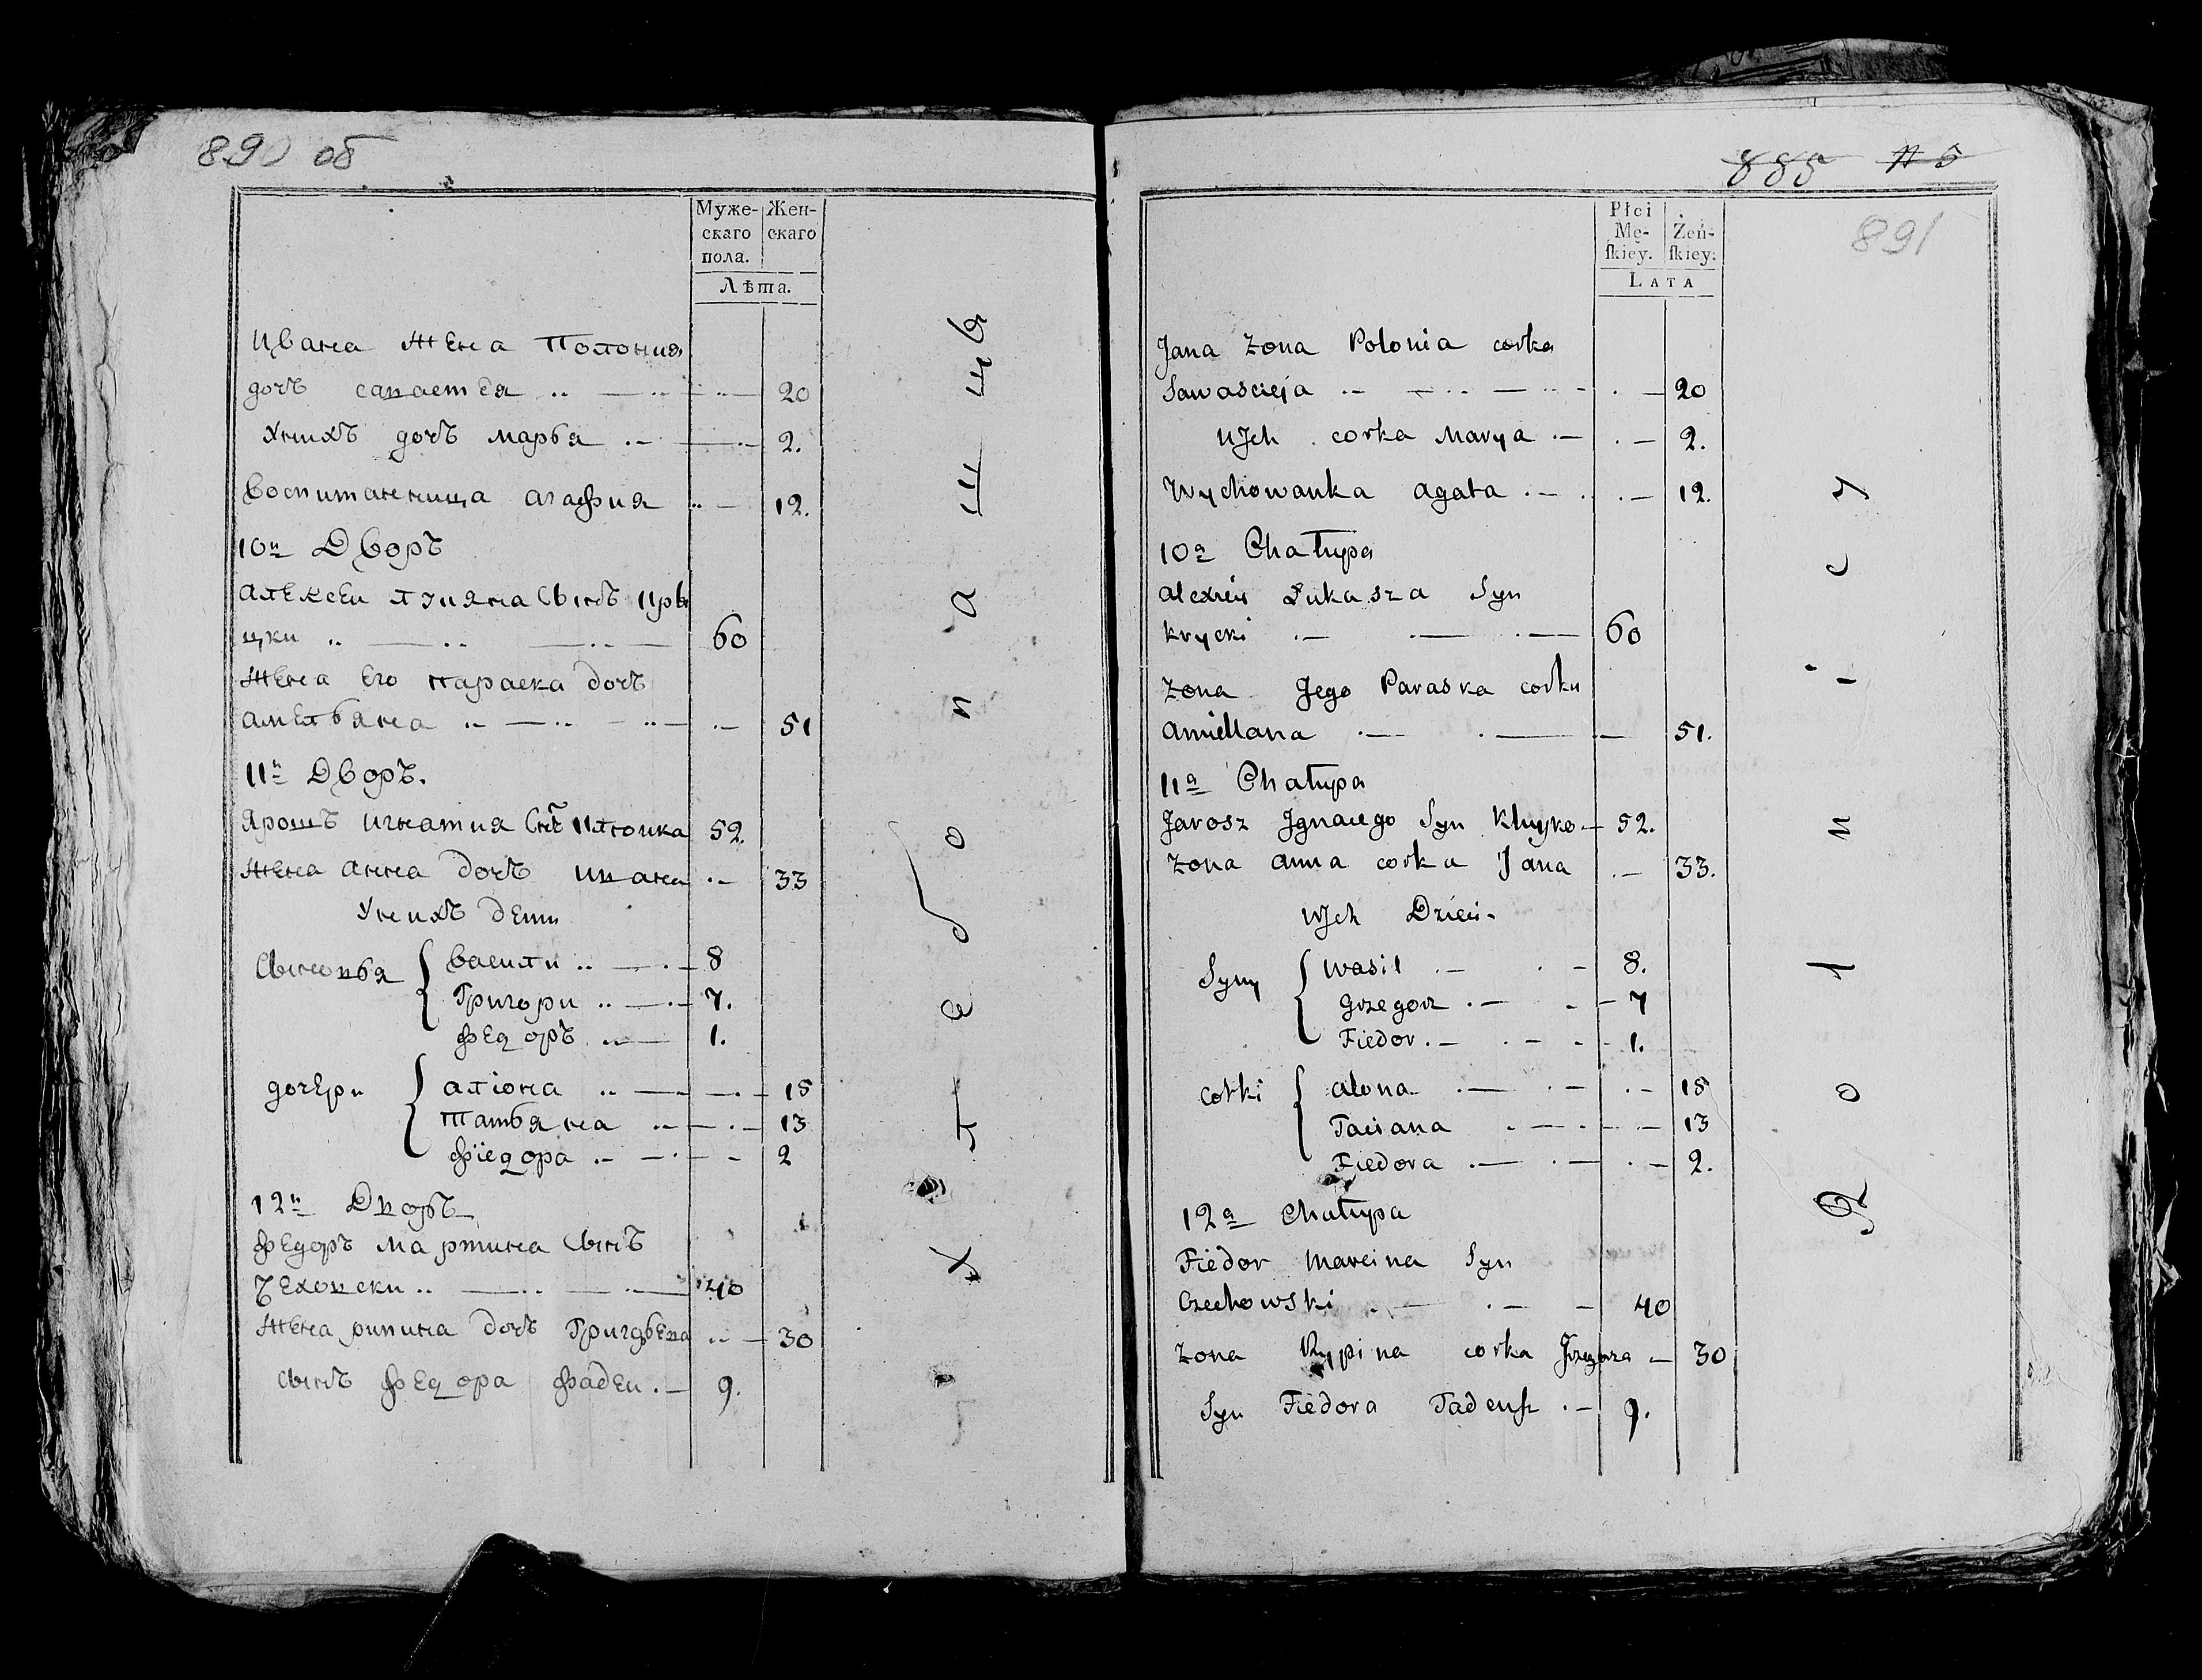 890 об
Муже- Жен-
скаго скаго
пола.
Лѣта.
Ивана жена Полония
дочъ савастея 20
Унихъ дочъ маръя 2.
Воспитанница агафия 12.
10й Дворъ
Алексеи лукяна сынъ кры
цки 60
Жена Его параска дочъ
амелъяна 51
11й Дворъ.
Ярошъ игнатия снъ клюика 52.
жена анна дочъ ивана 33
Унихъ дети
Сыновъя васили 8
Григори 7.
Федоръ 1.
дочери алiона 15
Татъяна 13
Фiедора 2
12й Дворъ
Федоръ мартина сынъ
Чеховски 40
Жена рипина дочъ Григоръева 30
сынъ Федора Фадеи 9.
Хлебопашцы
885 № 5
891
Płci
Mę- Żeń-
ſkiey. ſkiey:
LATA
Jana Zona Polonia corka
Sawascieja 20
U Jch corka Marya 2.
Wychowanka agata 12.
10a Chałupa
alexiey Łukasza Syn
Krycki 60
Zona Jego Paraska corka
amiellana 51.
11a Chałupa
Jarosz Jgnacego Syn Kluyko 52.
Zona anna corka Jana 33.
U Jch Dzieci
Syny Wasil 8.
Grzegorz 7
Fiedor 1.
corki alona 15
Taciana 13
Fiedora 2.
12a Chałupa
Fiedor Marcina Syn
Czechowski 40
Zona Rypina corka Grzegorza 30
Syn Fiedora Tadeuſz 9.
Rolnicy